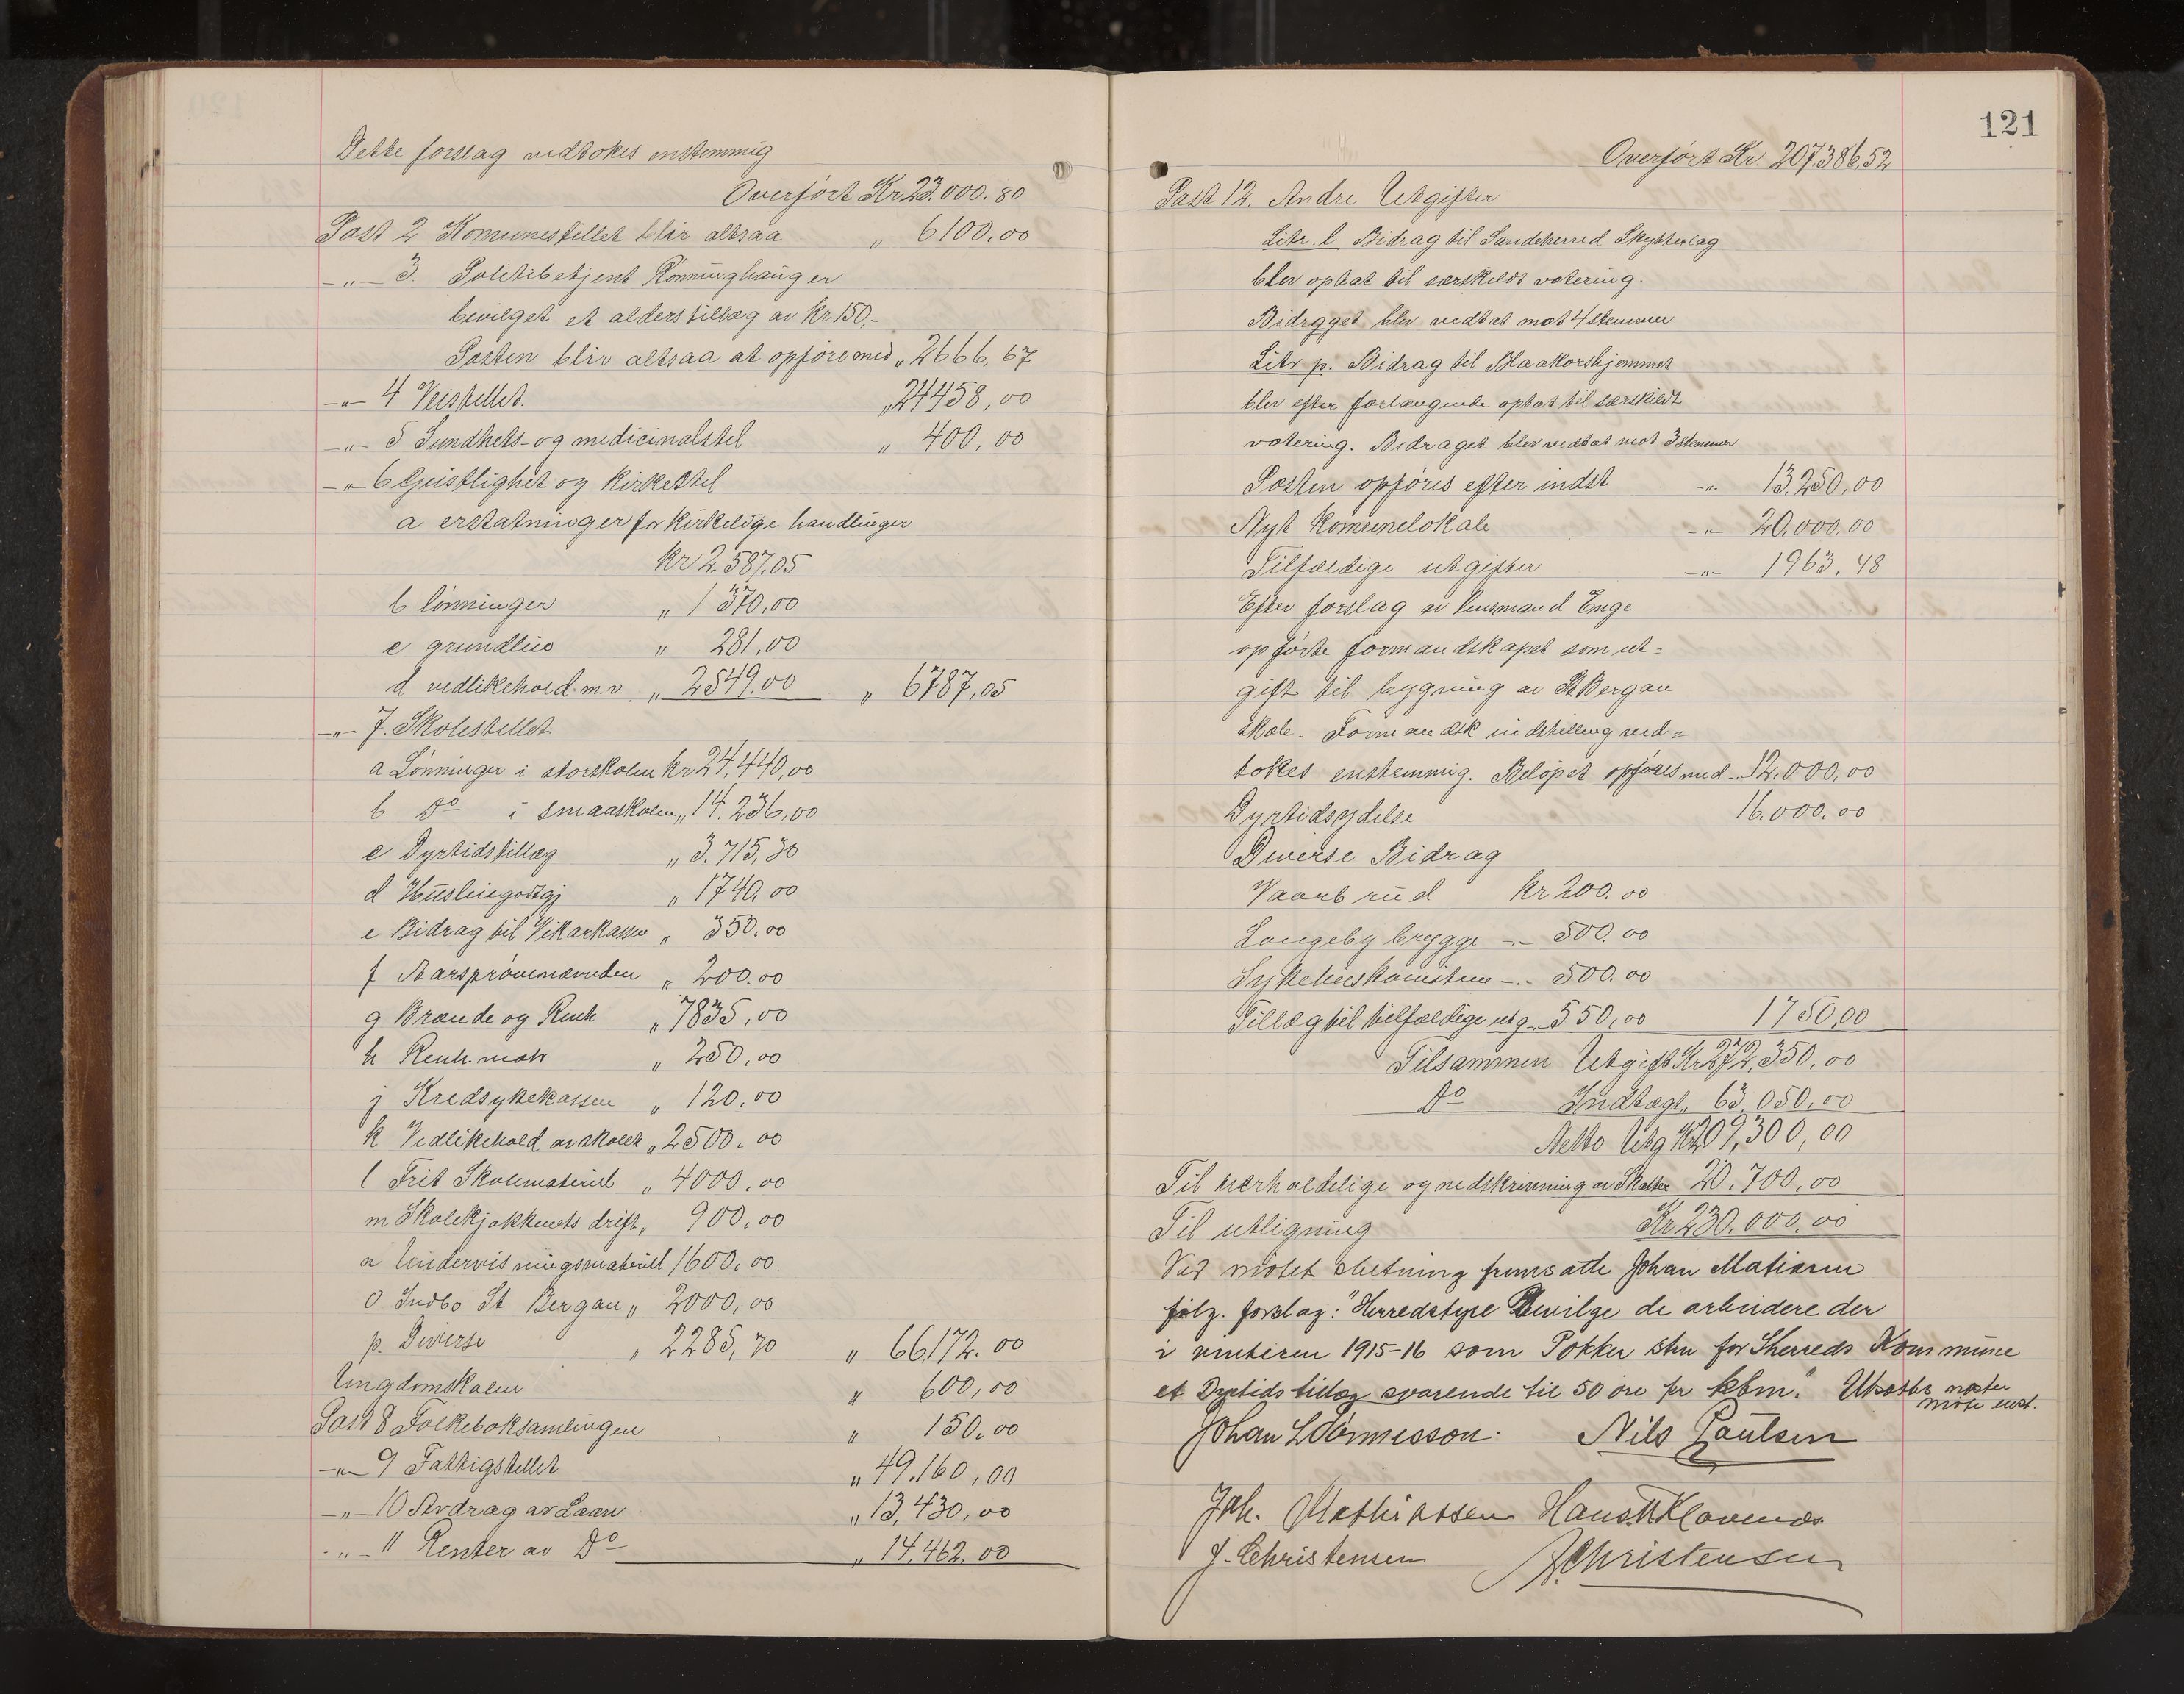 Dette forslag vedtokes enstemmig
Overført Kr 23.000.80
Post 2 Komunestellet blir altsaa „ 6100,00
–„– 3. Politibetjent Rønninghaug er
bevilget et alderstillæg av kr 150,-
Posten blir altsaa at opføre med „ 2666,67
–„– 4 Veistellet. „ 24458,00
–„– 5 Sundhets- og medicinalstel „ 400,00
–„– 6 Geistlighet og Kirkestel
a erstatninger for kirkelige handlinger
Kr 2.587.05
b lønninger „ 1370,00
c grundleie „ 281,00
d vedlikehold m.v. „ 2549.00 „ 6787,05
–„– 7. Skolestellet.
a Lønninger i storskolen kr 24,440,00
b Do i smaaskolen „ 14.236,00
c Dyrtidstillæg „ 3.715,30
d Husleiegodtgj „ 1740,00
e Bidrag til Vikarkassen „ 350.00
f Aarsprøvenævnden „ 200.00
g Brænde og Renh „ 7835,00
h Renh. matr „ 250,00
j Kredsykekassen „ 120,00
k Vedlikehold av skoler „ 2500,00
l Frit Skolemateriel „ 4000,00
m Skolekjøkkenets drift „ 900,00
n Undervisningsmateriel 1600,00
o Indbo St Bergan „ 2000,00
p. Diverse „ 2285,70 „ 66172.00
Ungdomskolen „ 600,00
Post 8 Folkeboksamlingen „ 150.00
–„– 9 Fattigstellet „ 49.160,00
–„– 10 Avdrag av Laan „ 13,430,00
–„– 11 Renter av Do „ 14.462.00
121
Overført Kr. 207386,52
Post 12. Andre Utgifter
Litr. l Bidrag til Sandeherred Skytterlag
blev optat til særskildt votering.
Bidragget blev vedtat mot 4 stemmer
Litr p. Bidrag til Blaakorshjemmet
blev efter forlangende optat til særskildt
votering. Bidraget blev vedtat mot 3 stemmer
Posten opføres efter indst –„– 13.250,00
Nyt Komunelokale –„– 20.000,00
Tilfældige utgifter –„– 1963,48
Efter forslag av lensmand Enge
opførte formandskapet som ut=
gift til bygning av St Bergan
skole. Formandsk indstilling ved=
tokes enstemmig. Beløpet opføres med –„– 12.000,00
Dyrtidsydelse 16.000.00
Diverse Bidrag
Vaarbrud Kr 200.00
Langeby brygge –„– 500.00
Sykehuskomiteen –„– 500.00
Tillæg til tilfældige utg –„– 550,00 1750,00
Tilsammen Utgift Kr 272,350.00
Do Indtægt „ 63.050,00
Netto Utg Kr 209,300,00
Til uerholdelige og nedskrivning av Skatter 20.700,00
Til utligning Kr 230.000.00
Ved møtets slutning fremsatte Johan Matisen
følg. forslag: "Herredstyre Bevilge de arbeidere der
i vinteren 1915-16 som Pokker sten for Sherreds Kommune
et Dyrtidstillæg svarende til 50 øre pr kbm." Utsættes næste
møte enst.
Johan L Nils Paulsen
Joh. Mathisen Hans Klavenes
J. Christensen A Christensen